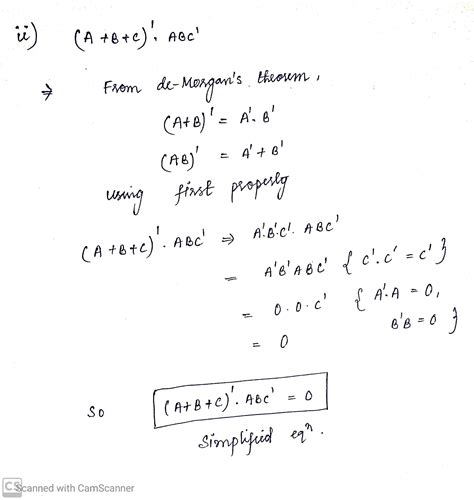 ii) (A+B+C)'. ABC'
⇒ From de-Morgan's theorem,
(A+B)' = A'. B'
(AB)' = A' + B'
using first property
(A+B+C)'. ABC' ⇒ A'.B'.C'. ABC'
= A'B'ABC' { C'.C' = C' }
= 0.0.C' { A'.A = 0,
B'B = 0 }
= 0
So (A+B+C)'. ABC' = 0
Simplified eqⁿ.
CS Scanned with CamScanner